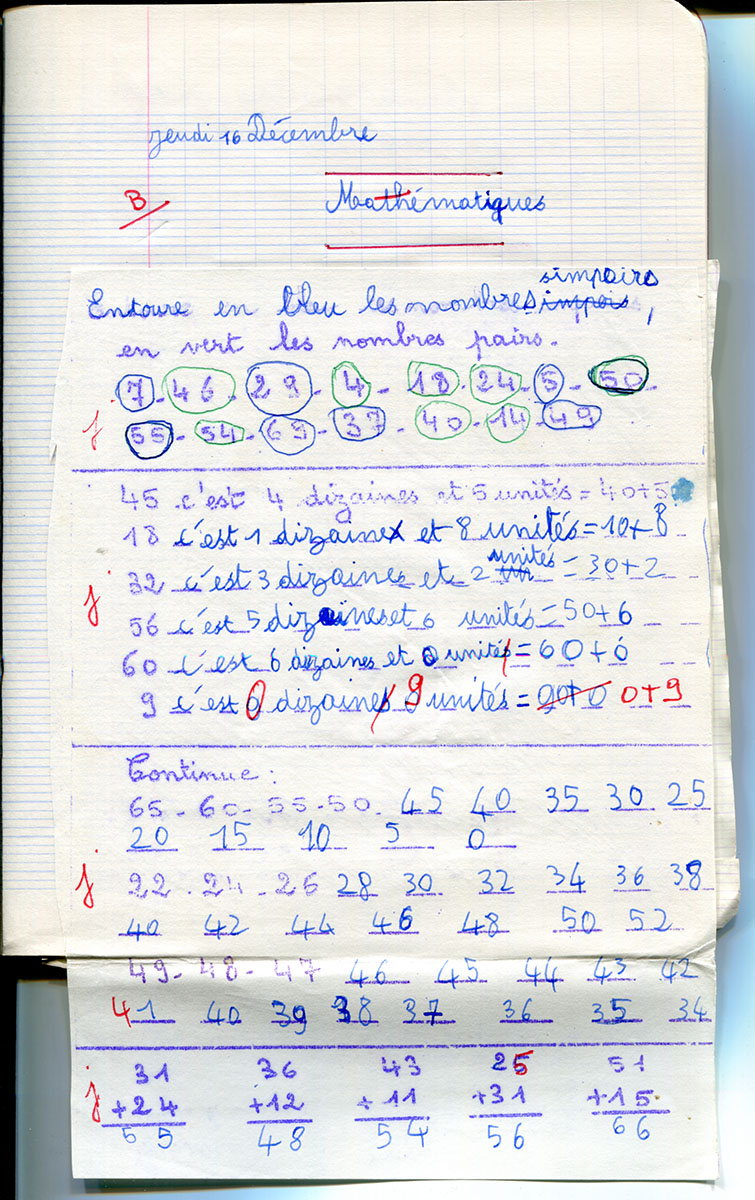 jeudi 16 Décembre
B
Mathématiques
simpairs
Entoure en bleu les nombres impers,
en vert les nombres pairs.
7 - 46 - 29 - 4 - 18 - 24 - 5 - 50 -
j 55 - 54 - 69 - 37 - 40 - 14 - 49
45 c'est 4 dizaines et 5 unités = 40+5
18 c'est 1 dizaine et 8 unités = 10+8
j 32 c'est 3 dizaines et 2 unités = 30+2
56 c'est 5 dizaines et 6 unités = 50+6
60 c'est 6 dizaines et 0 unités = 60+0
9 c'est 0 dizaines 9 unités = 90+0 0+9
Continue :
65 - 60 - 55 - 50 - 45 40 35 30 25
20 15 10 5 0
j 22 - 24 - 26 28 30 32 34 36 38
40 42 44 46 48 50 52
49 - 48 - 47 46 45 44 43 42
41 40 39 38 37 36 35 34
31 36 43 25 51
j +24 +12 +11 +31 +15
55 48 54 56 66